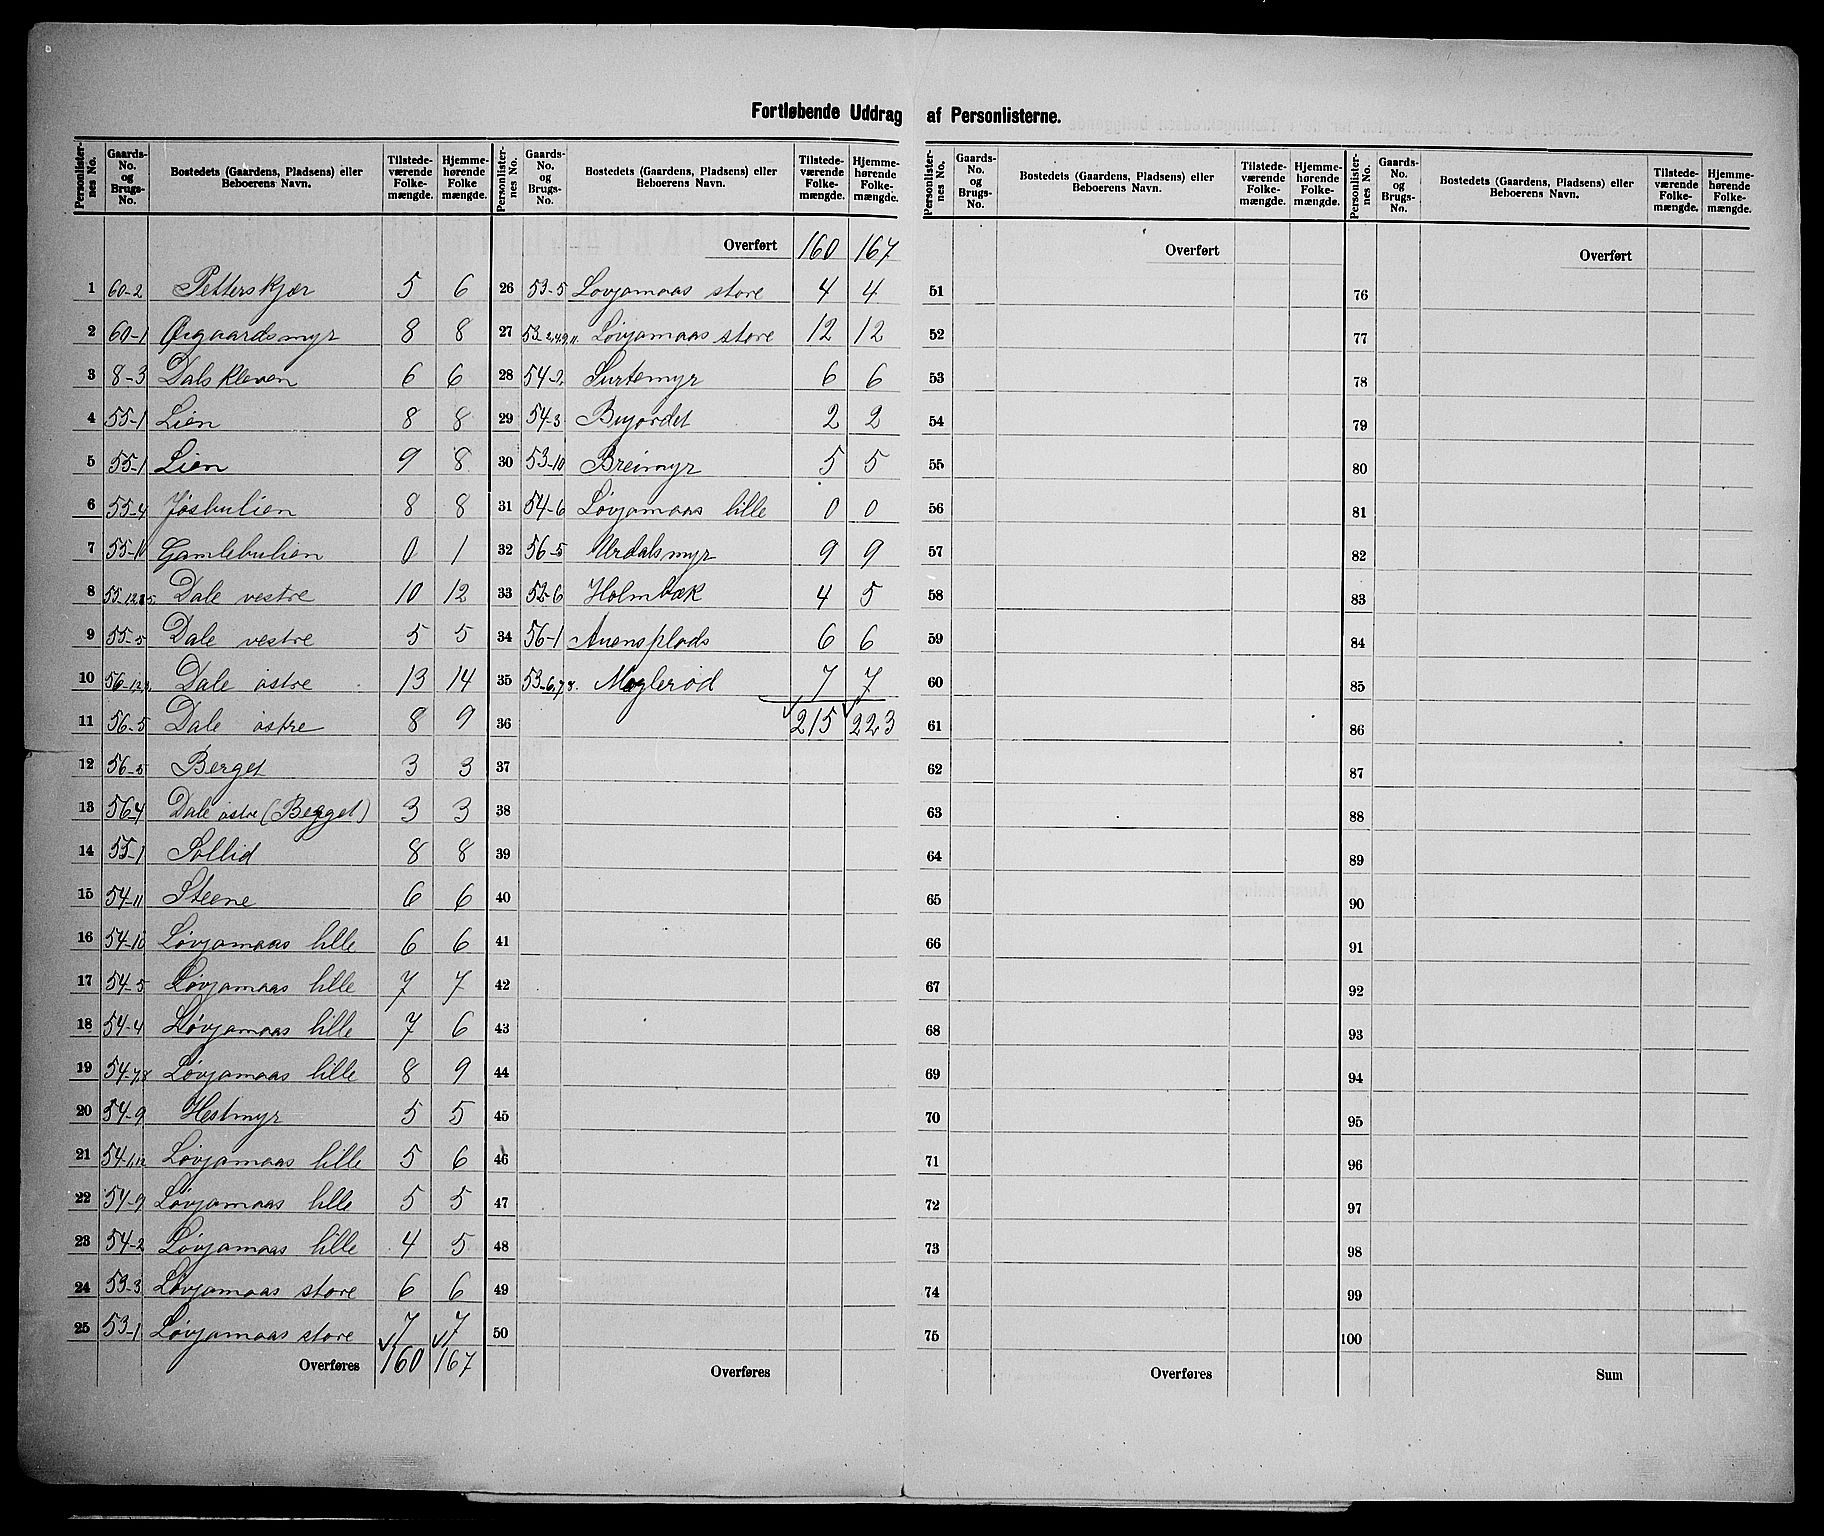 Fortløbende Uddrag af Personlisterne.
Personlisternes No. | Gaards-No. og Brugs-No. | Bostedets (Gaardens, Pladsens) eller Beboerens Navn. | Tilstedeværende Folkemængde. | Hjemmehørende Folkemængde.
1 60-2 Petterskjær 5 6
2 60-1 Øigaardsmyr 8 8
3 8-3 Dalskleven 6 6
4 55-1 Lien 8 8
5 55-1 Lien 9 8
6 55-4 Jøsbulien 8 8
7 55-10 Gamlebulien 0 1
8 Dale vestre 10 12
9 55-5 Dale vestre 5 5
10 Dale østre 13 14
11 56-5 Dale østre 8 9
12 56-5 Berget 3 3
13 56-4 Dale østre (Berget) 3 3
14 55-1 Sollid 8 8
15 54-11 Steene 6 6
16 54-10 Løvjomaas lille 6 6
17 54-5 Løvjomaas lille 7 7
18 54-4 Løvjomaas lille 7 6
19 54-7,8 Løvjomaas lille 8 9
20 54-9 Hestmyr 5 5
21 54-1,12 Løvjomaas lille 5 6
22 54-9 Løvjomaas lille 5 5
23 54-2 Løvjomaas lille 4 5
24 53-3 Løvjomaas store 6 6
25 53-1 Løvjomaas store 7 7
Overføres 160 167
Personlisternes No. | Gaards-No. og Brugs-No. | Bostedets (Gaardens, Pladsens) eller Beboerens Navn. | Tilstedeværende Folkemængde. | Hjemmehørende Folkemængde.
Overført 160 167
26 53-5 Løvjomaas store 4 4
27 53-2,4,9,11. Løvjomaas store 12 12
28 54-2, Surtemyr 6 6
29 54-3 Byjordet 2 2
30 53-10 Breimyr 5 5
31 54-6 Løvjomaas lille 0 0
32 56-5 Urdalsmyr 9 9
33 52-6 Holmbæk 4 5
34 56-1 Auensplads 6 6
35 53-6,7,8. Møglerød 7 7
36 215 223
37
38
39
40
41
42
43
44
45
46
47
48
49
50
Overføres
Personlisternes No. | Gaards-No. og Brugs-No. | Bostedets (Gaardens, Pladsens) eller Beboerens Navn. | Tilstedeværende Folkemængde. | Hjemmehørende Folkemængde.
Overført
51
52
53
54
55
56
57
58
59
60
61
62
63
64
65
66
67
68
69
70
71
72
73
74
75
Overføres
Personlisternes No. | Gaards-No. og Brugs-No. | Bostedets (Gaardens, Pladsens) eller Beboerens Navn. | Tilstedeværende Folkemængde. | Hjemmehørende Folkemængde.
Overført
76
77
78
79
80
81
82
83
84
85
86
87
88
89
90
91
92
93
94
95
96
97
98
99
100
Sum